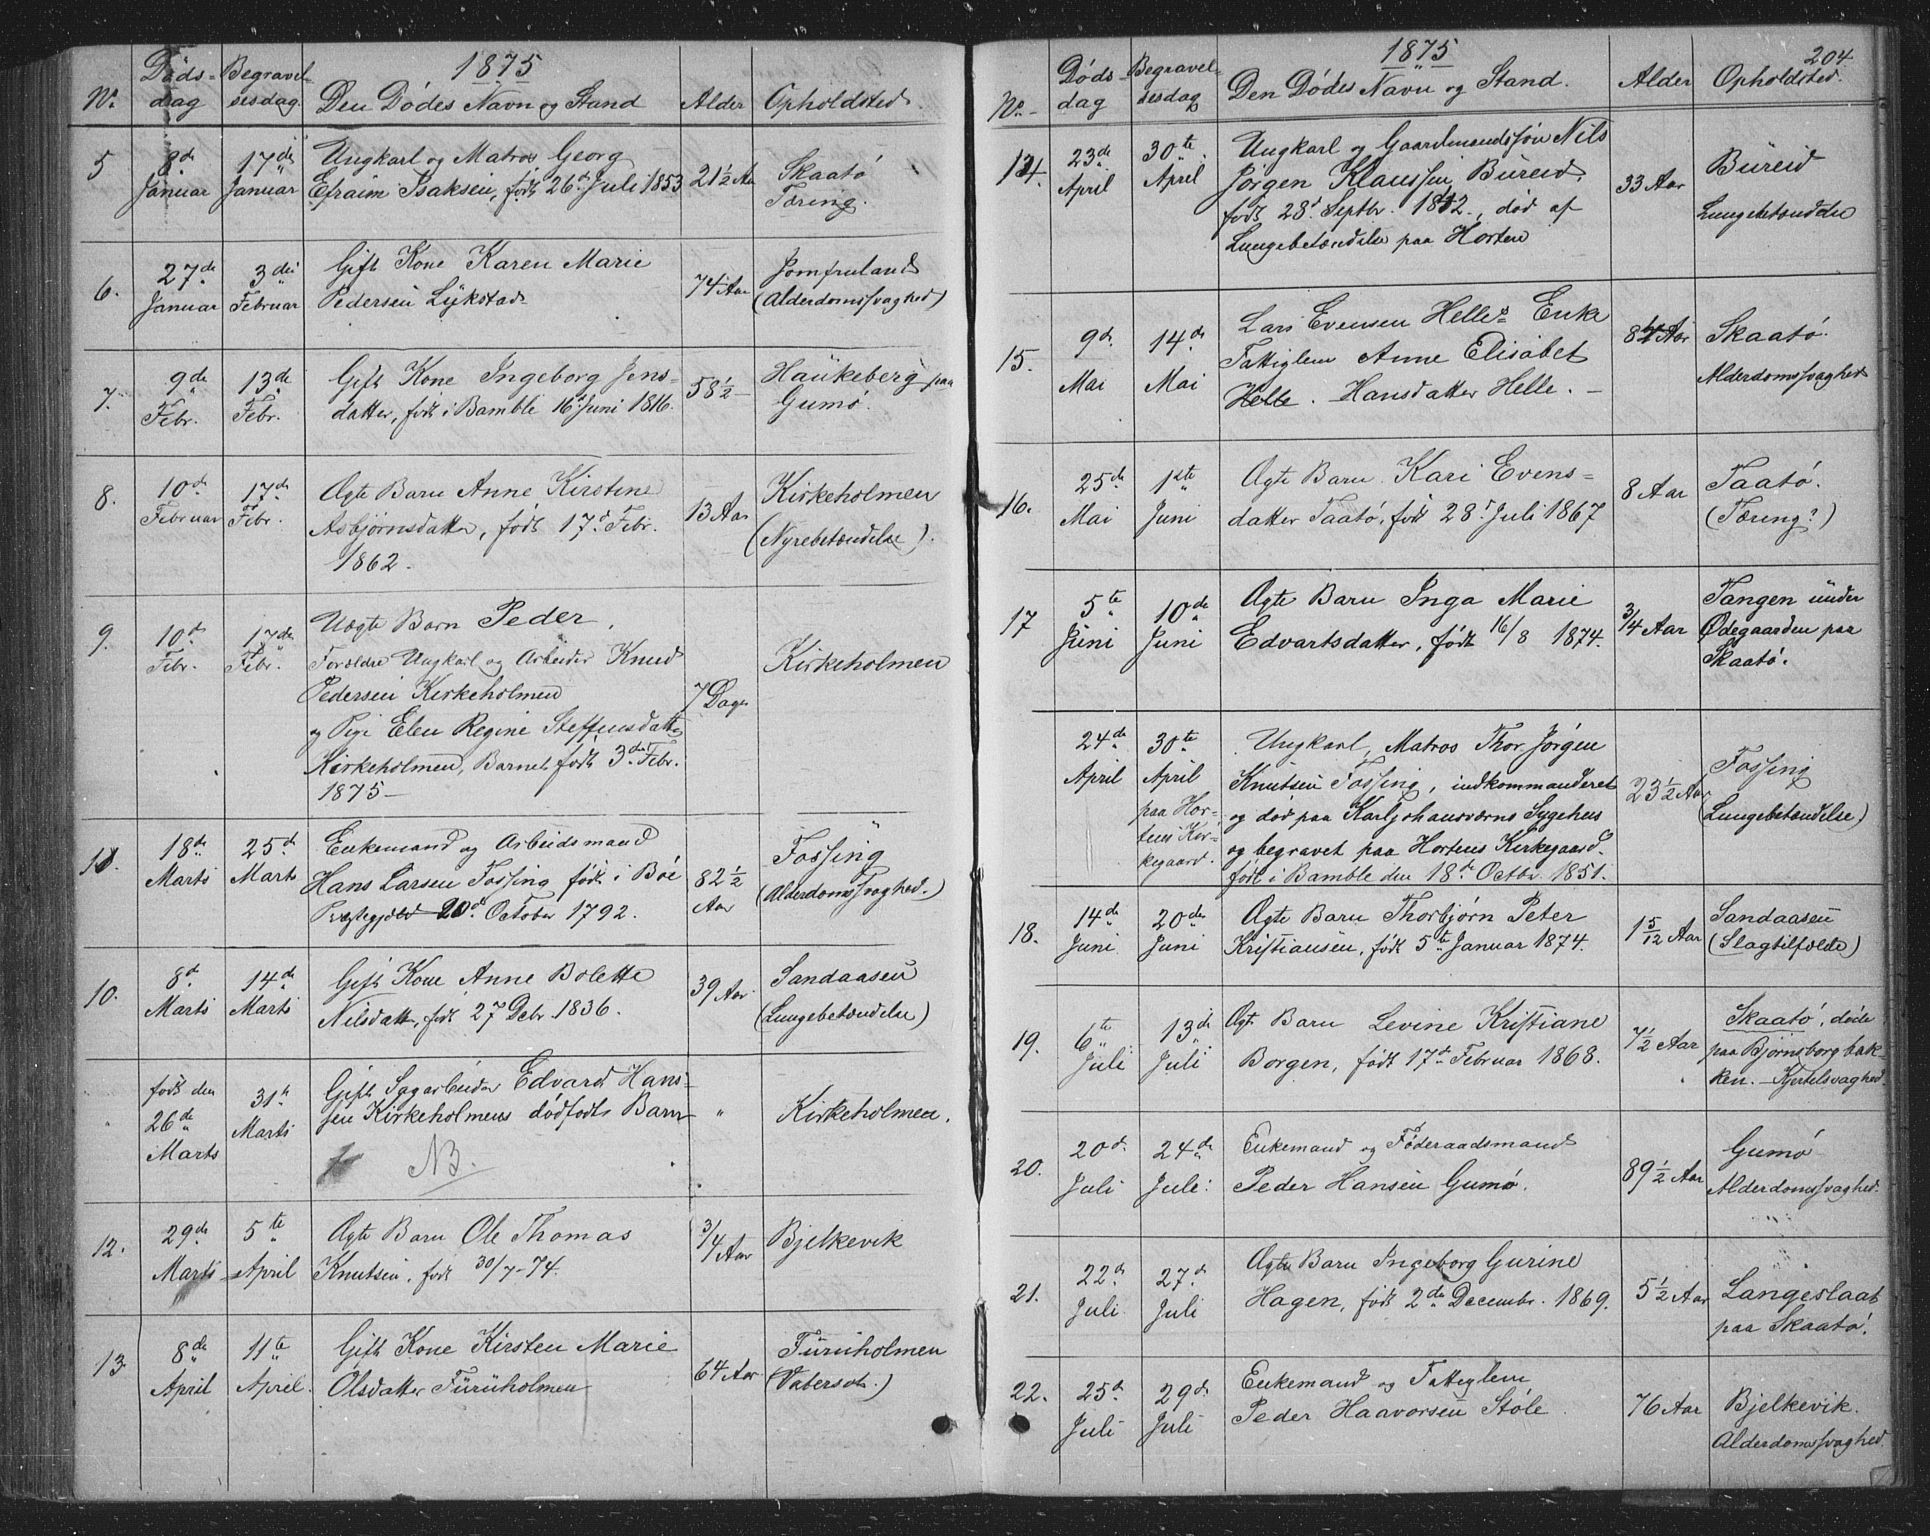 1875
No.
Döds-
dag
Begravel-
sesdag.
Den Dödes Navn og Stand
Alder
Opholdsted.
5
8de
Januar
17de
Januar
Ungkarl og Matros Georg
Efraim Isaksen, født 26d Juli 1853
21½ Aar
Skaatö
Tæring.
6.
27de
Januar
3die
Februar
Gift Kone Karen Marie
Pedersen Lykstad
74 Aar
Jomfruland
(Alderdomssvaghed)
7.
9de
Febr.
13de
Febr.
Gift Kone Ingeborg Jens-
datter, født i Bamble 16 Juni 1816.
58½
Haukeberg paa
Gumö.
8.
10de
Februar
17de
Febr.
Ægte Barn Anne Kirstine
Asbjörnsdatter, født 17d Febr.
1862.
13 Aar
Kirkeholmen
(Nyrebetændelse).
9.
10d
Febr.
17de
Febr.
Uægte Barn Peder.
Forældre Ungkarl og Arbeider Knud
Pedersen Kirkeholmen
og Pige Elen Regine Steffensdatter
Kirkeholmen, Barnet født 3die Febr.
1875 –
7 Dage
Kirkeholmen
11.
18de
Marts
25d
Marts
Enkemand og Arbeidsmand
Hans Larsen Fossing født i Böe
Prestegjeld 20de October 1792.
82½
Aar
Fossing
(Alderdomssvaghed.)
10.
8d
Marts
14de
Marts
Gift Kone Anne Bolette
Nilsdatt, født 27 Debr 1836.
39 Aar
Sandaasen
(Lungebetændelse)
født den
26de
Marts
31te
Marts
Gift Sagarbeider Edvard Hans-
sen Kirkeholmens dödfödte Barn
NB.
"
Kirkeholmen.
12.
29de
Marts
5te
April
Ægte Barn Ole Thomas
Knutsen, født 30/7 - 74.
3/4 Aar
Bjelkevik
13.
8de
April
11te
April.
Gift Kone Kirsten Marie
Olsdatter Furuholmen
64 Aar
Furuholmen
(Vatersot.)
1875
204.
No.
Döds-
dag
Begravel-
sesdag
Den Dödes Navn og Stand.
Alder
Opholdsted.
14.
23de
April
30te
April
Ungkarl og Gaardmandssön Nils
Jörgen Klaussen Büreid,
født 28d Septbr. 1842., död af
Lungebetændelse paa Horten
33 Aar
Büreid
Lungebetændelse
15.
9de
Mai
14de
Mai
Lars Evensen Helles Enke
Fattiglem Anne Elisabet
Helle. Hansdatter Helle. –
Skaatö.
Alderdomssvaghed
16.
25de
Mai
1ste
Juni
Ægte Barn Kari Evens-
datter Taatö, født 28d Juli 1867
8 Aar
Taatö.
(Tæring?)
17
5te
Juni
10de
Juni
Ægte Barn Inga Marie
Edvartsdatter, født 16/8 1874.
3/4 Aar
Tangen under
Ödegaarden paa
Skaatö.
24de
April
30te
April
paa Hor-
tens Kir-
kegaard.
Ungkarl, Matros Thor Jörgen
Knutsen Fossing, indkommanderet
og död paa Karljohansværns Sygehus
og begravet paa Hortens Kirkegaard.
født i Bamble den 18de Octbr. 1851.
23½ Aar
Fossing
(Lungebetændelse)
18.
14de
Juni
20de
Juni
Ægte Barn Thorbjörn Peter
Kristiansen, født 5te Januar 1874.
1 5/12 Aar
Sandaasen
(Slagtilfælde)
19.
6te
Juli
13de
Juli
Ægte Barn Levine Kristiane
Borgen, født 17de Februar 1868.
7½ Aar
Skaatö, döde
paa Björnsborg bak-
ken. – Kjertelsvaghed.
20.
20d
Juli
24de
Juli
Enkemand og Föderaadsmand
Peder Hansen Gumö.
89½ Aar
Gumö
Alderdomssvaghed.
21.
22de
Juli
27d
Juli
Ægte Barn Ingeborg Gurine
Hagen, født 2den Decembr. 1869.
5½ Aar
Langeslaat
paa Skaatö.
22.
25d
Juli
29d
Juli
Enkemand og Fattiglem
Peder Haavorsen Stöle
76 Aar
Bjelkevik.
Alderdomssvaghed.